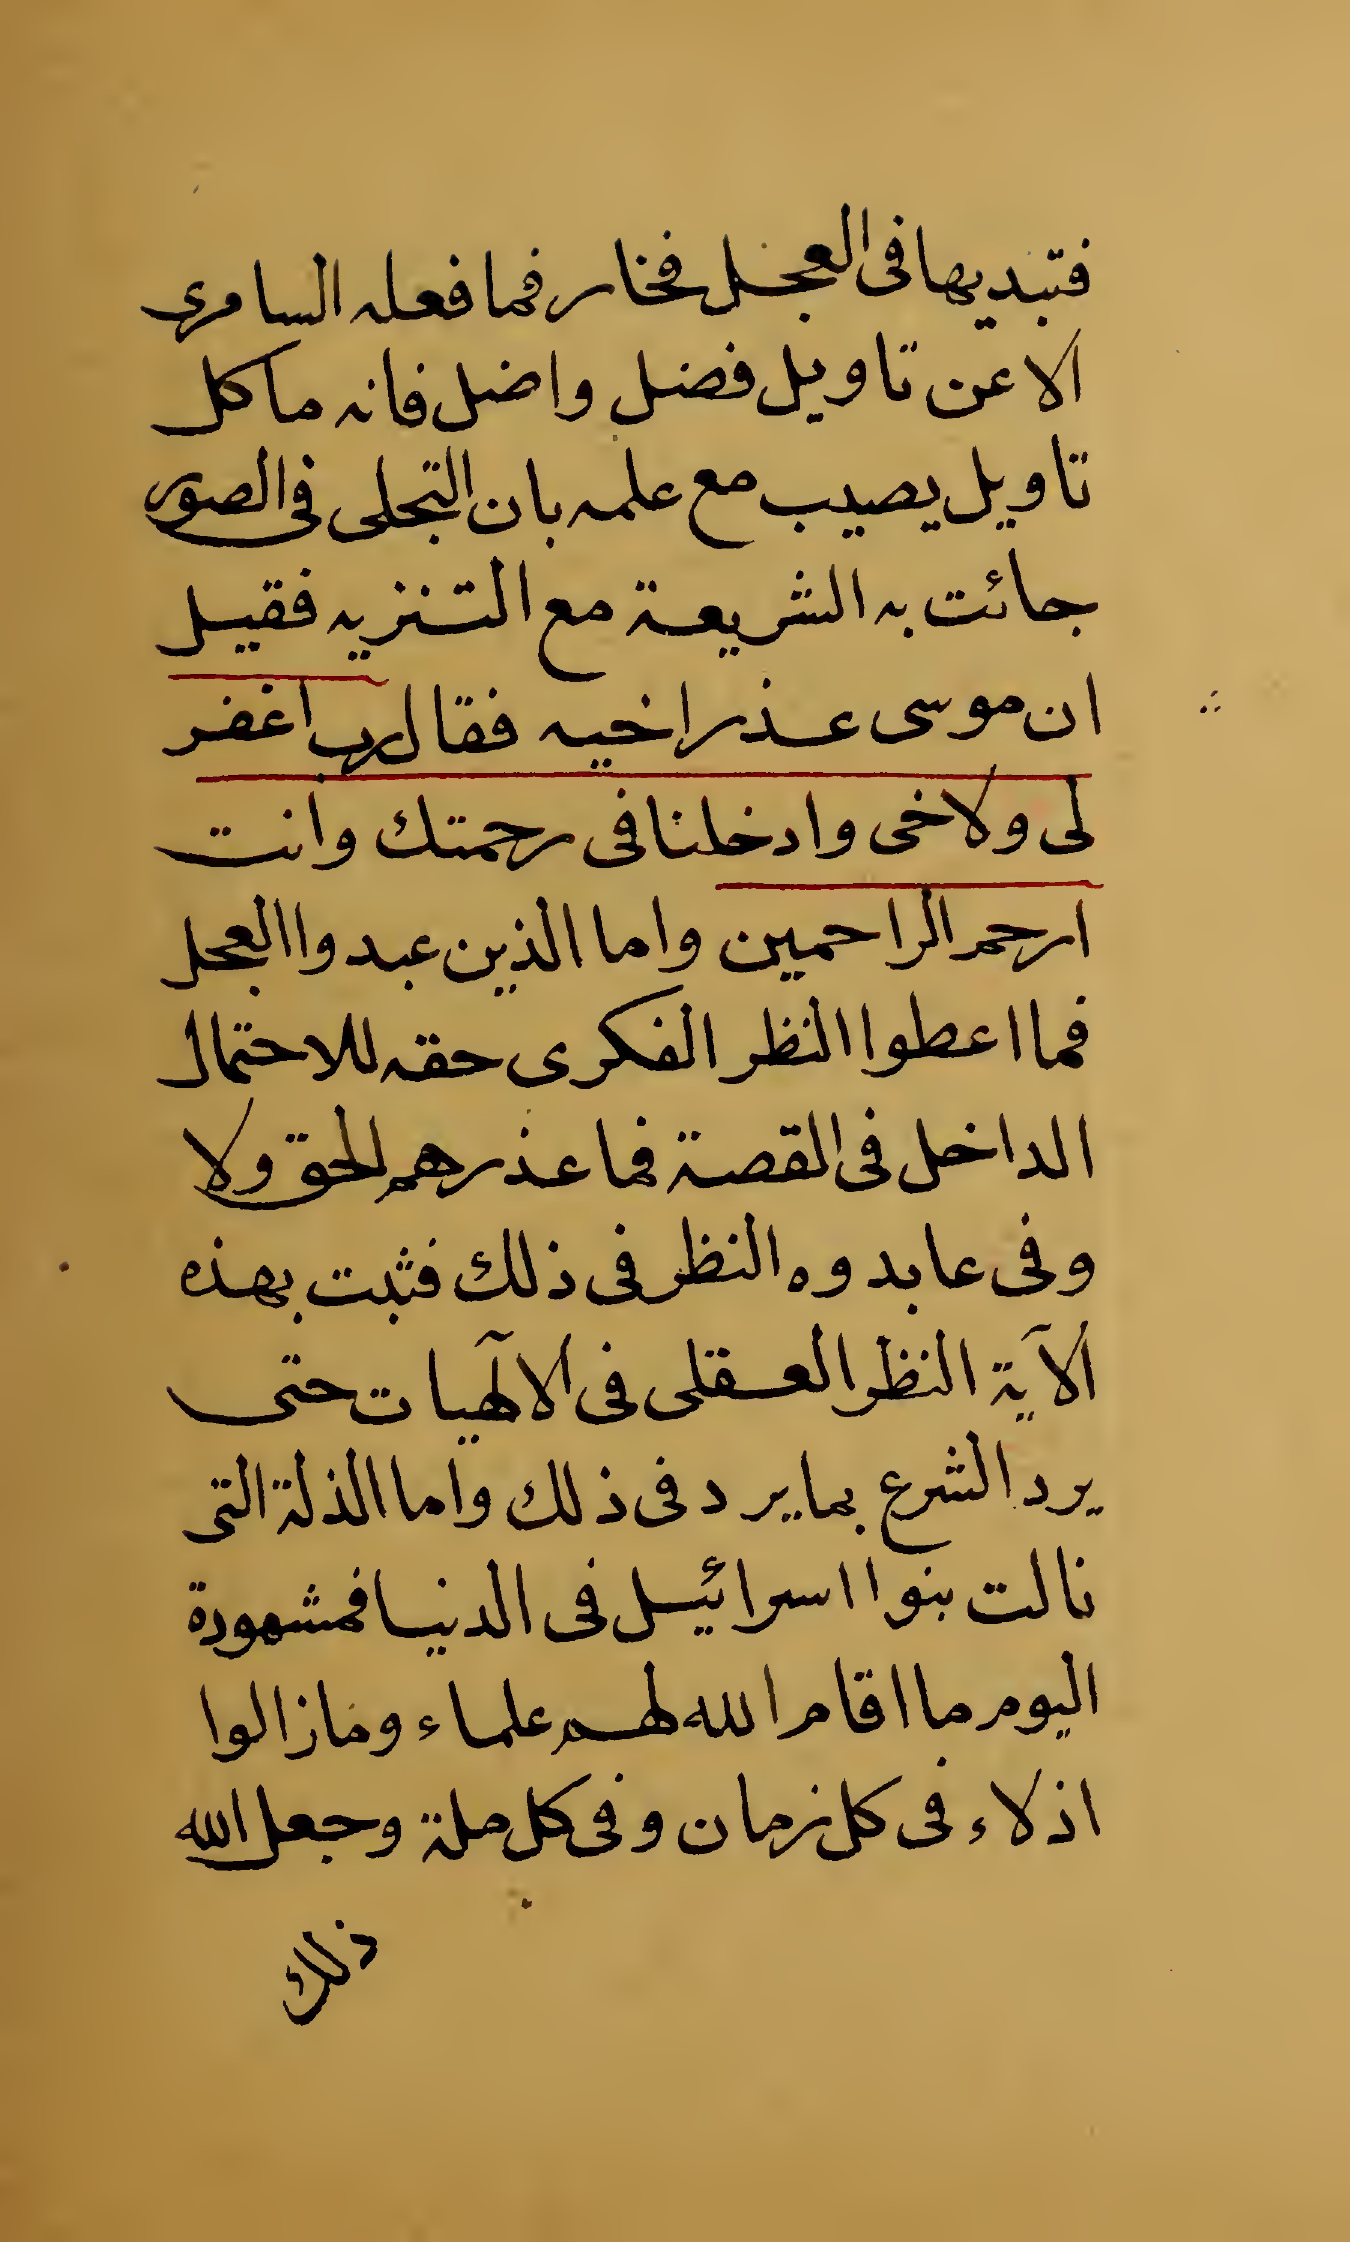 فتبديها فى العجل فخار فما فعله السامرى
الا عن تاويل فضل واضل فانه ما كل
تاويل يصيب مع علمه بان التجلى فى الصور
جائت به الشريعة مع التنزيه فقيل
ان موسى عذر اخيه فقال رب اغفر
لى ولاخى وادخلنا فى رحمتك وانت
ارحم الراحمين واما الذين عبدوا العجل
فما اعطوا النظر الفكرى حقه للاحتمال
الداخل فى القصة فما عذرهم الحق ولا
وفى عابدوه النظر فى ذلك فثبت بهذه
الآية النظر العقلى فى الالٓهيات حتى
يرد الشرع بما يرد فى ذلك واما الذلة التى
نالت بنوا اسرائيل فى الدنيا فمشهودة
اليوم ما اقام الله لهم علماء وما زالوا
اذلاء فى كل زمان وفى كل ملة وجعل الله
ذلك